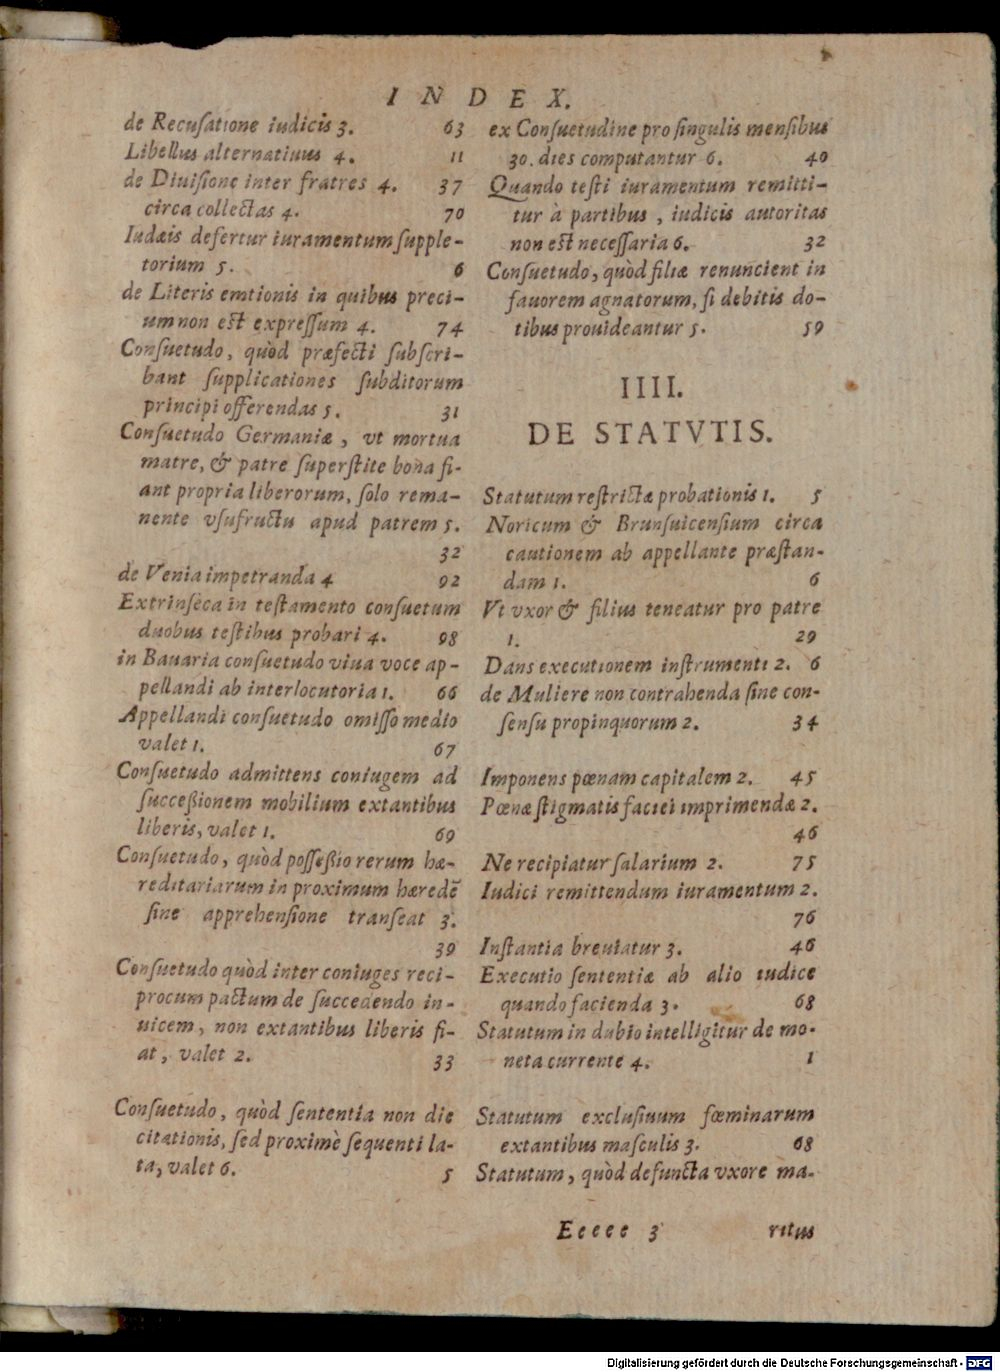 INDEX.
de Recuſatione iudicis 3. 63
Libellus alternatiuus 4. 11
de Diuiſione inter fratres 4. 37
circa collectas 4. 70
Iudæis defertur iuramentum ſupple-
torium 5. 6
de Literis emtionis in quibus preci-
um non est expreſſum 4. 74
Conſuetudo, quòd præfecti ſubſcri-
bant ſupplicationes ſubditorum
principi offerendas 5. 31
Conſuetudo Germaniæ, vt mortua
matre, & patre ſuperſtite bona fi-
ant propria liberorum, ſolo rema-
nente vſufructu apud patrem 5.
32
de Venia impetranda 4 92
Extrinſeca in teſtamento conſuetum
duobus teſtibus probari 4. 98
in Bauaria conſuetudo viua voce ap-
pellandi ab interlocutoria 1. 66
Appellandi conſuetudo omiſſo medio
valet 1. 67
Conſuetudo admittens coniugem ad
ſucceßionem mobilium extantibus
liberis, valet 1. 69
Conſuetudo, quòd poſſeßio rerum hæ-
reditariarum in proximum hæredē
ſine apprehenſione tranſeat 3.
39
Conſuetudo quòd inter coniuges reci-
procum pactum de ſuccedendo in-
uicem, non extantibus liberis fi-
at, valet 2. 33
Conſuetudo, quòd ſententia non die
citationis, ſed proximè ſequenti la-
ta, valet 6. 5
ex Conſuetudine pro ſingulis menſibus
30. dies computantur 6. 40
Quando teſti iuramentum remitti-
tur à partibus, iudicis autoritas
non est neceſſaria 6. 32
Conſuetudo, quòd filiæ renuncient in
fauorem agnatorum, ſi debitis do-
tibus prouideantur 5. 59
IIII.
DE STATVTIS.
Statutum reſtrictæ probationis 1. 5
Noricum & Brunſuicenſium circa
cautionem ab appellante præſtan-
dam 1. 6
Vt vxor & filius teneatur pro patre
1. 29
Dans executionem inſtrumenti 2. 6
de Muliere non contrahenda ſine con-
ſenſu propinquorum 2. 34
Imponens pœnam capitalem 2. 45
Pœnæ ſtigmatis faciei imprimendæ 2.
46
Ne recipiatur ſalarium 2. 75
Iudici remittendum iuramentum 2.
76
Inſtantia breuiatur 3. 46
Executio ſententiæ ab alio iudice
quando facienda 3. 68
Statutum in dubio intelligitur de mo-
neta currente 4. 1
Statutum excluſiuum fœminarum
extantibus maſculis 3. 68
Statutum, quòd defuncta vxore ma-
Eeeee 3 ritus
Digitalisierung gefördert durch die Deutsche Forschungsgemeinschaft - DFG